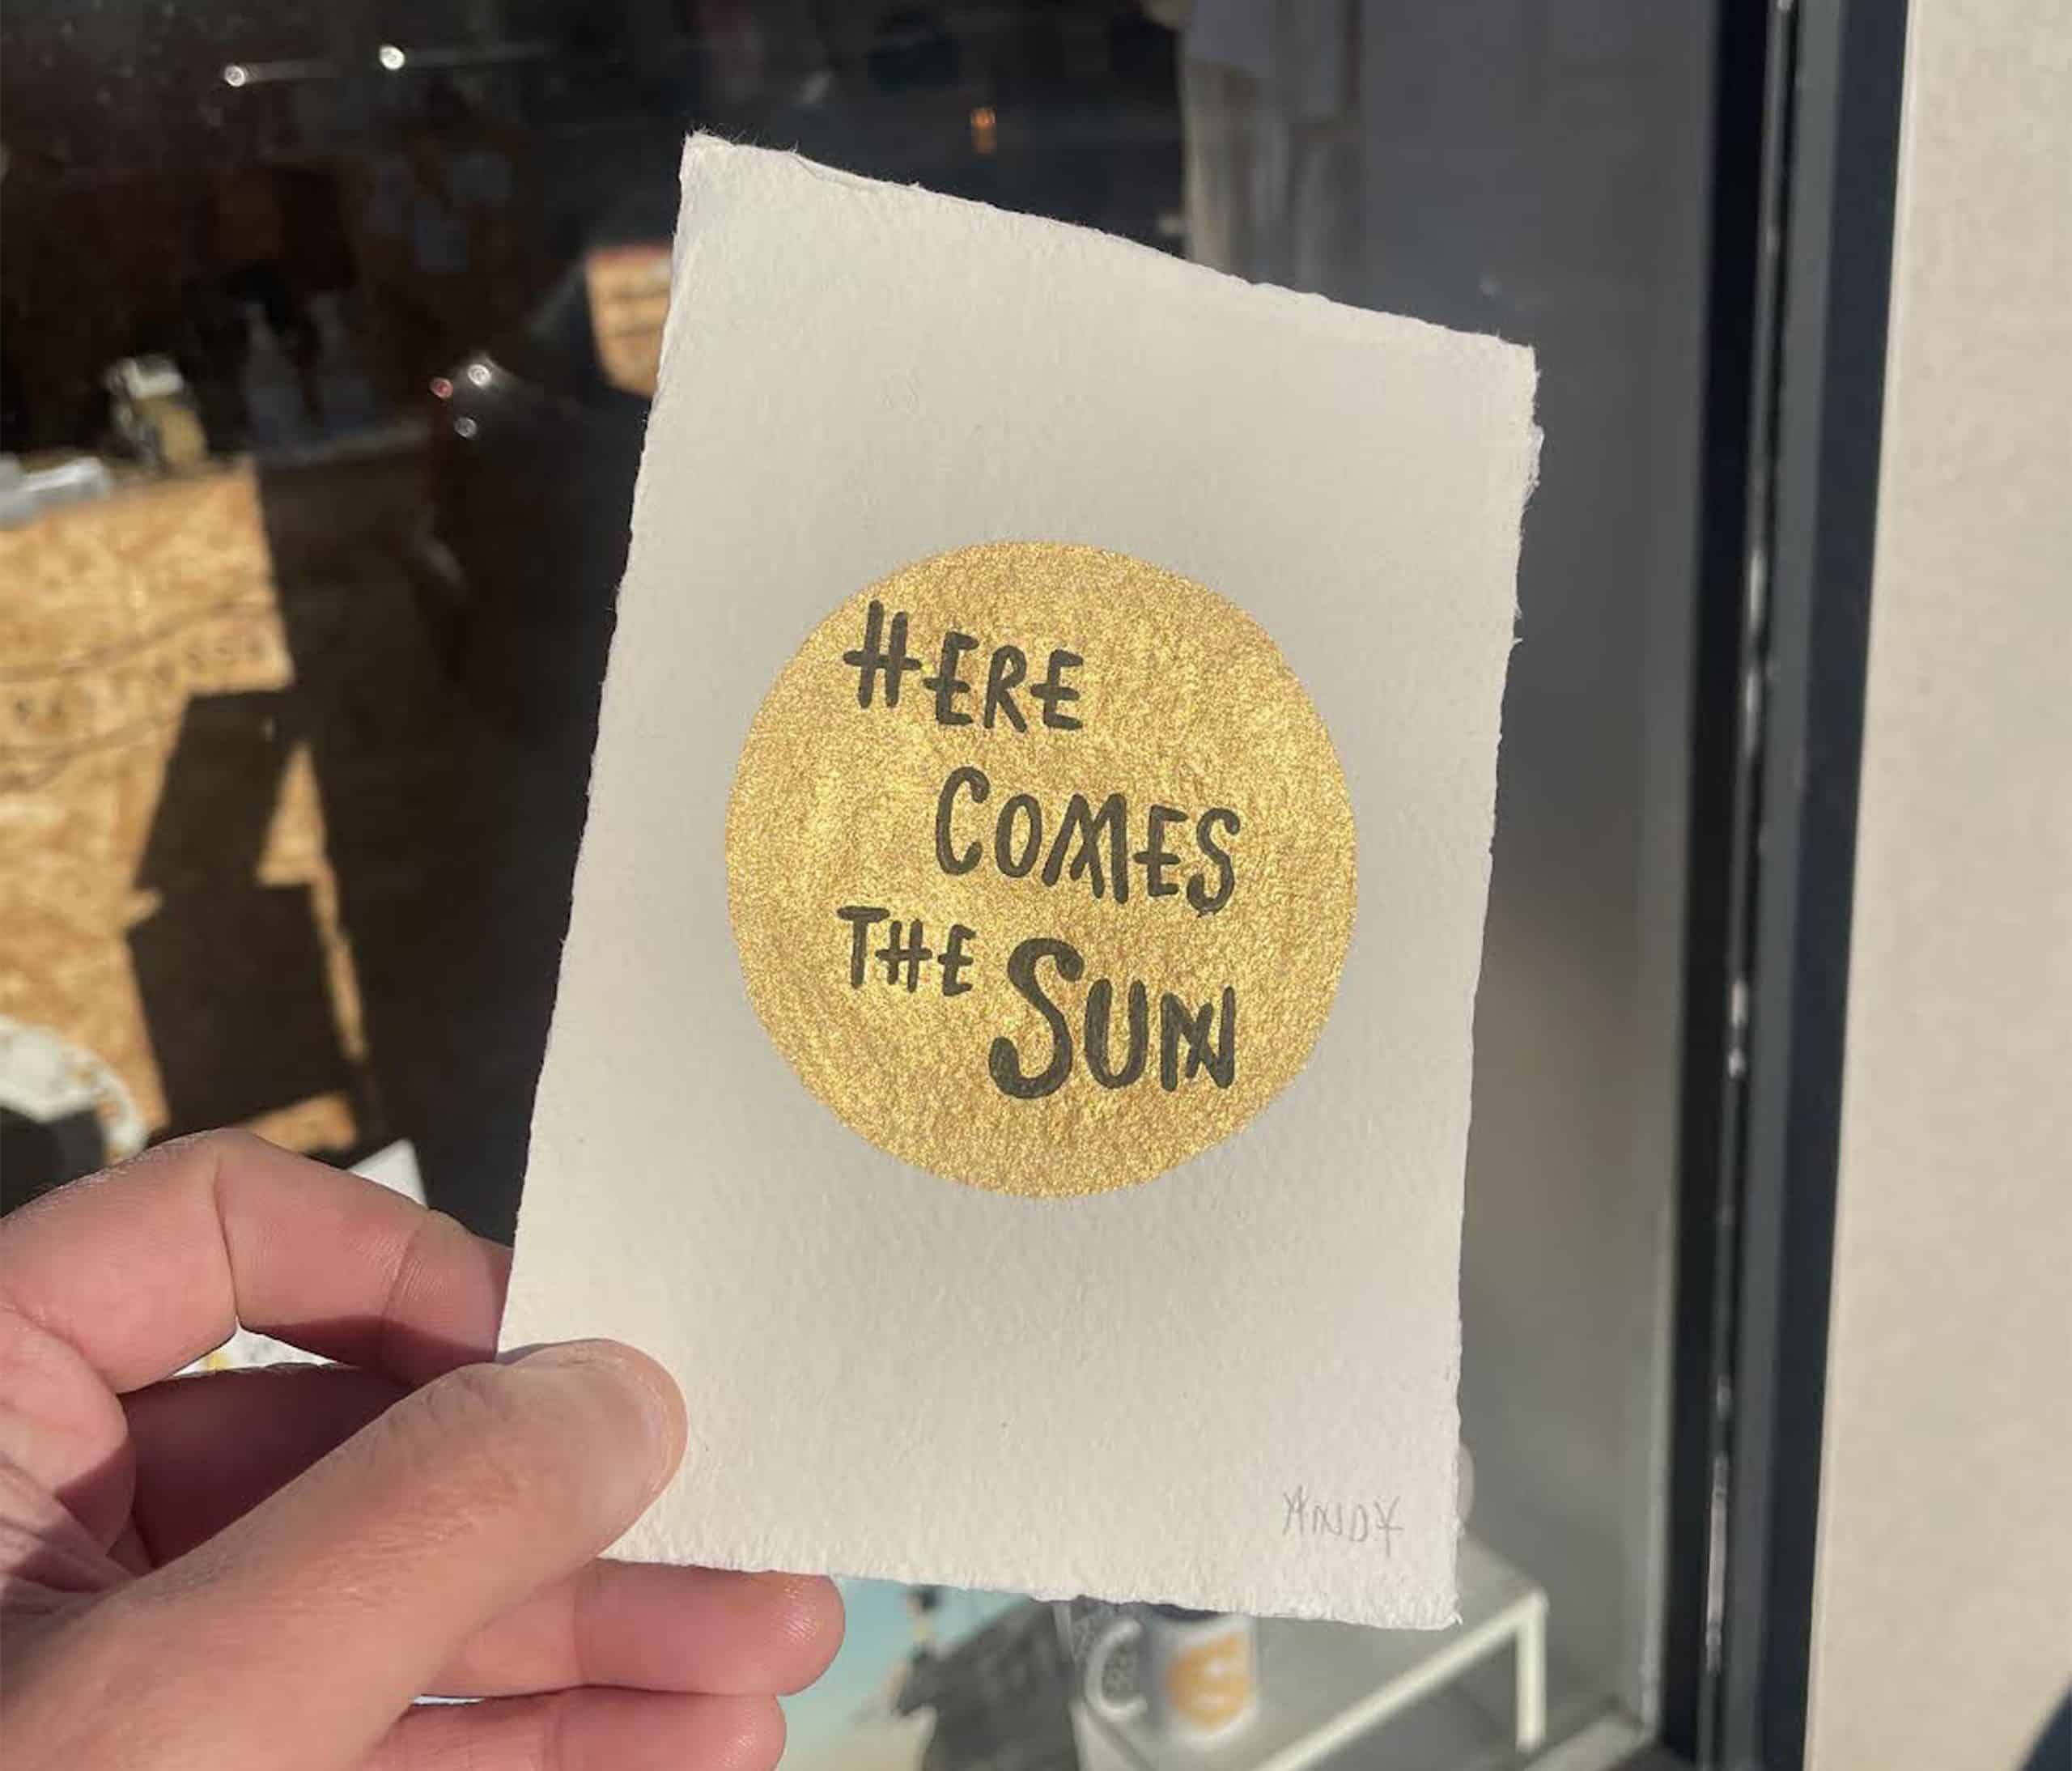 HERE
COMES
THE SUN
ANDY